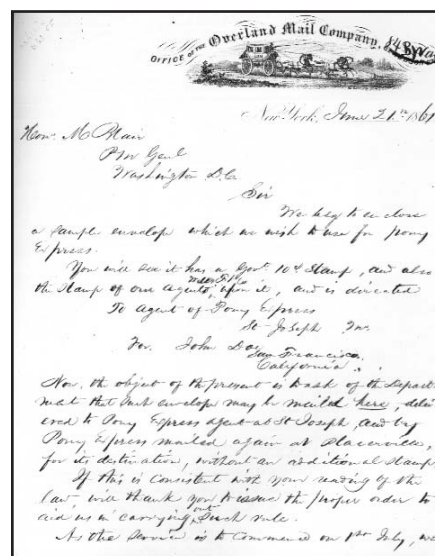 OFFICE OF THE Overland Mail Company,
New York, June 21st 1861
Hon. M Blair
P M Genl
Washington D.C.
Sir
We beg to enclose
a sample envelope which we wish to use for pony
Express.
You will see it has a Govt 10¢ Stamp, and also
the Stamp of our agents, upon it, and is directed
To Agent of Pony Express
St Joseph Mo.
For John Doe
San Francisco
California.
Now, the object of the present is to ask of the Depart
ment that such envelope may be mailed here, deliv
ered to Pony Express agent at St Joseph, and by
Pony Express mailed again at Placerville,
for its destination, without an additional Stamp
If this is consistent with your reading of the
law will thank you to issue the proper order to
aid us in carrying out such rule.
As the service is to commence on 1st July, we